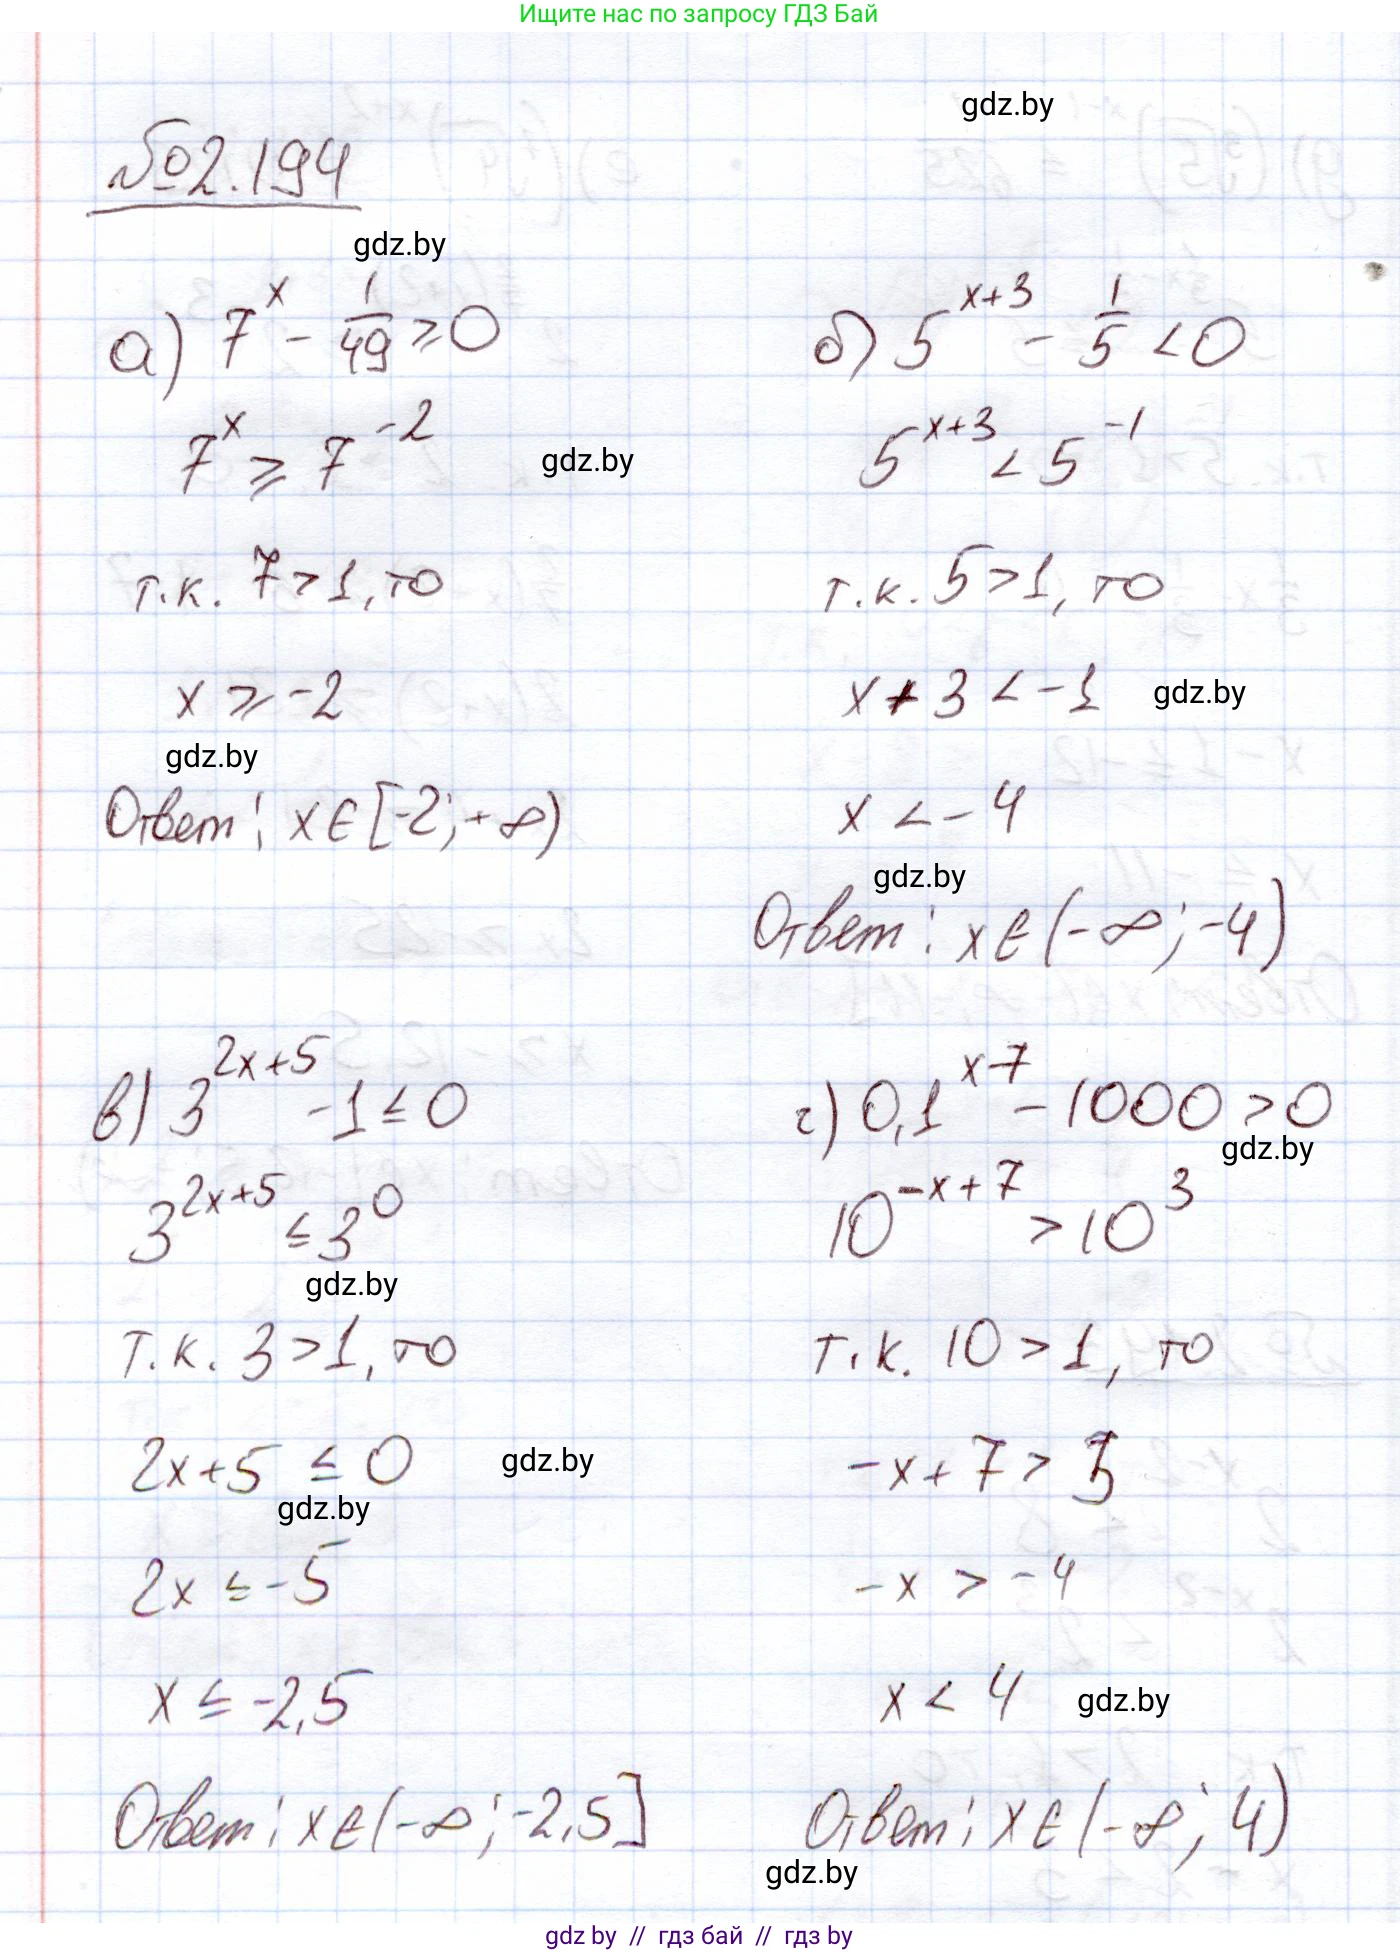 Ищите нас по запросу ГДЗ Бай
gdz.by
№2.194
gdz.by
а) 7^x - 1/49 ≥ 0
7^x ≥ 7^-2
gdz.by
т.к. 7 > 1, то
x ≥ -2
gdz.by
Ответ: x ∈ [-2; +∞)
б) 5^x+3 - 1/5 < 0
5^x+3 < 5^-1
т.к. 5 > 1, то
x + 3 < -1
gdz.by
x < -4
gdz.by
Ответ: x ∈ (-∞; -4)
в) 3^2x+5 - 1 ≤ 0
3^2x+5 ≤ 3^0
gdz.by
т.к. 3 > 1, то
2x+5 ≤ 0
gdz.by
gdz.by
2x ≤ -5
x ≤ -2,5
Ответ: x ∈ (-∞; -2,5]
г) 0,1^x-7 - 1000 > 0
gdz.by
10^-x+7 > 10^3
т.к. 10 > 1, то
-x + 7 > 3
-x > -4
x < 4
gdz.by
Ответ: x ∈ (-∞; 4)
gdz.by
gdz by // гдз бай // гдз by